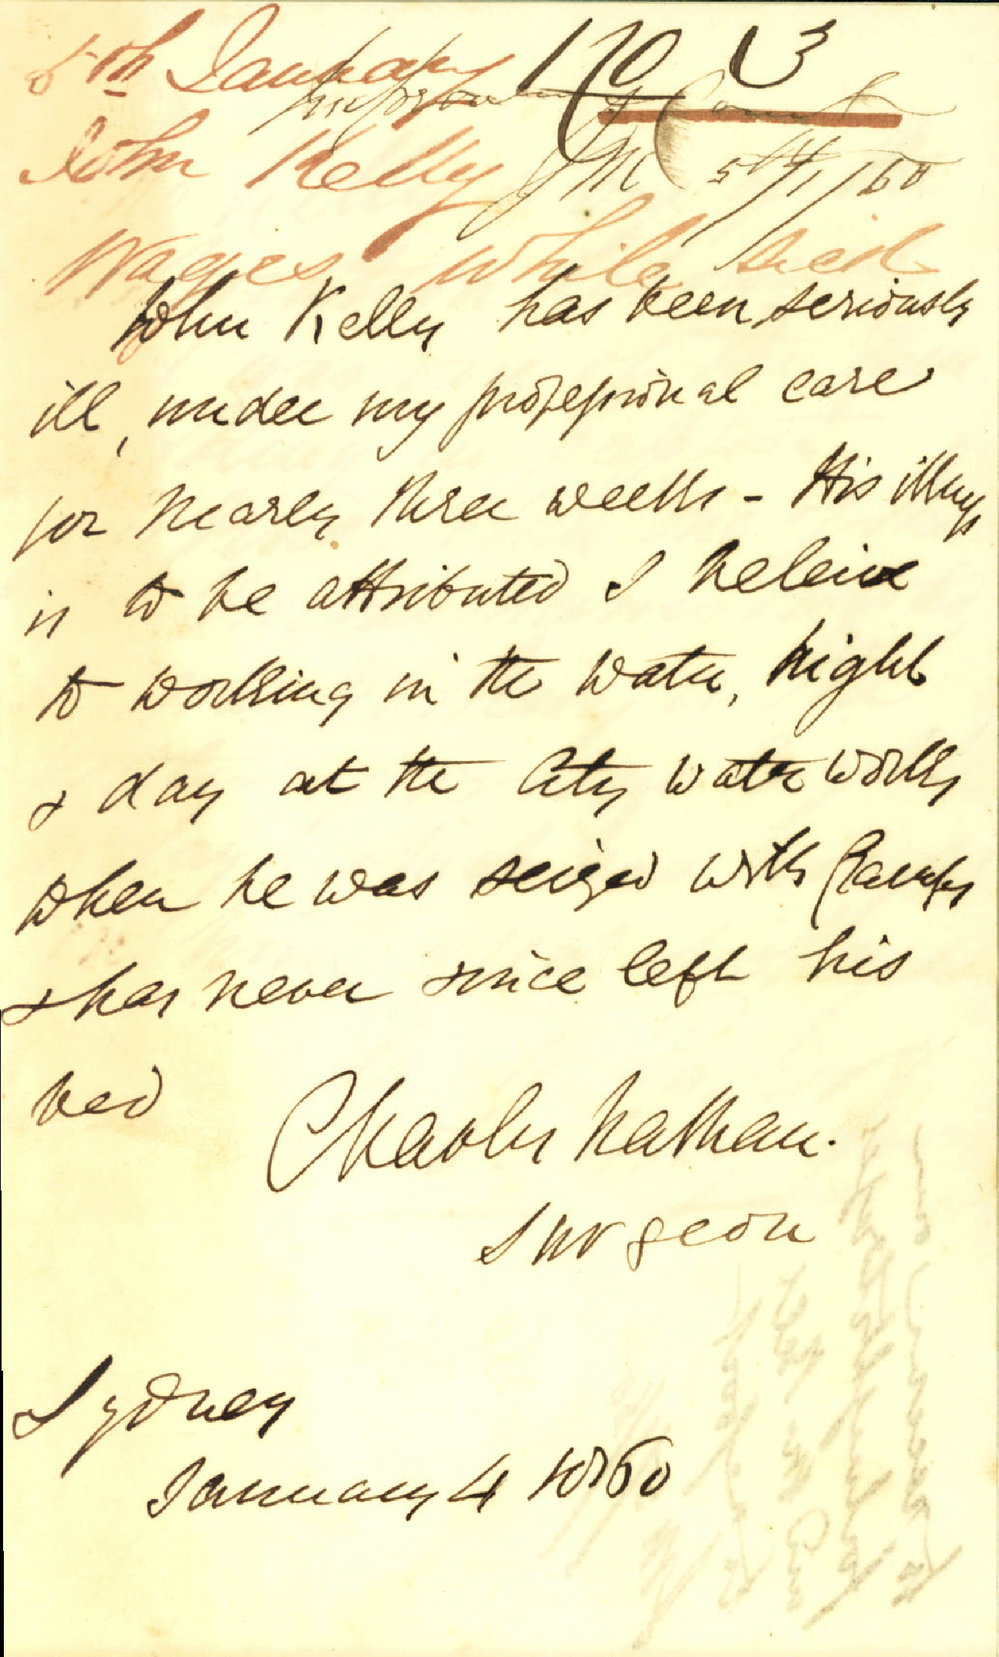 5th January 170 3
John Kelly JM 5/1/60
Wages while sick
John Kelly has been seriously
ill, under my professional care
for nearly three weeks - His illness
is to be attributed I beleive
to working in the water, night
& day at the City water works
when he was seized with Cramps
& has never since left his
bed
Charles Nathan.
Surgeon
Sydney
January 4 1860